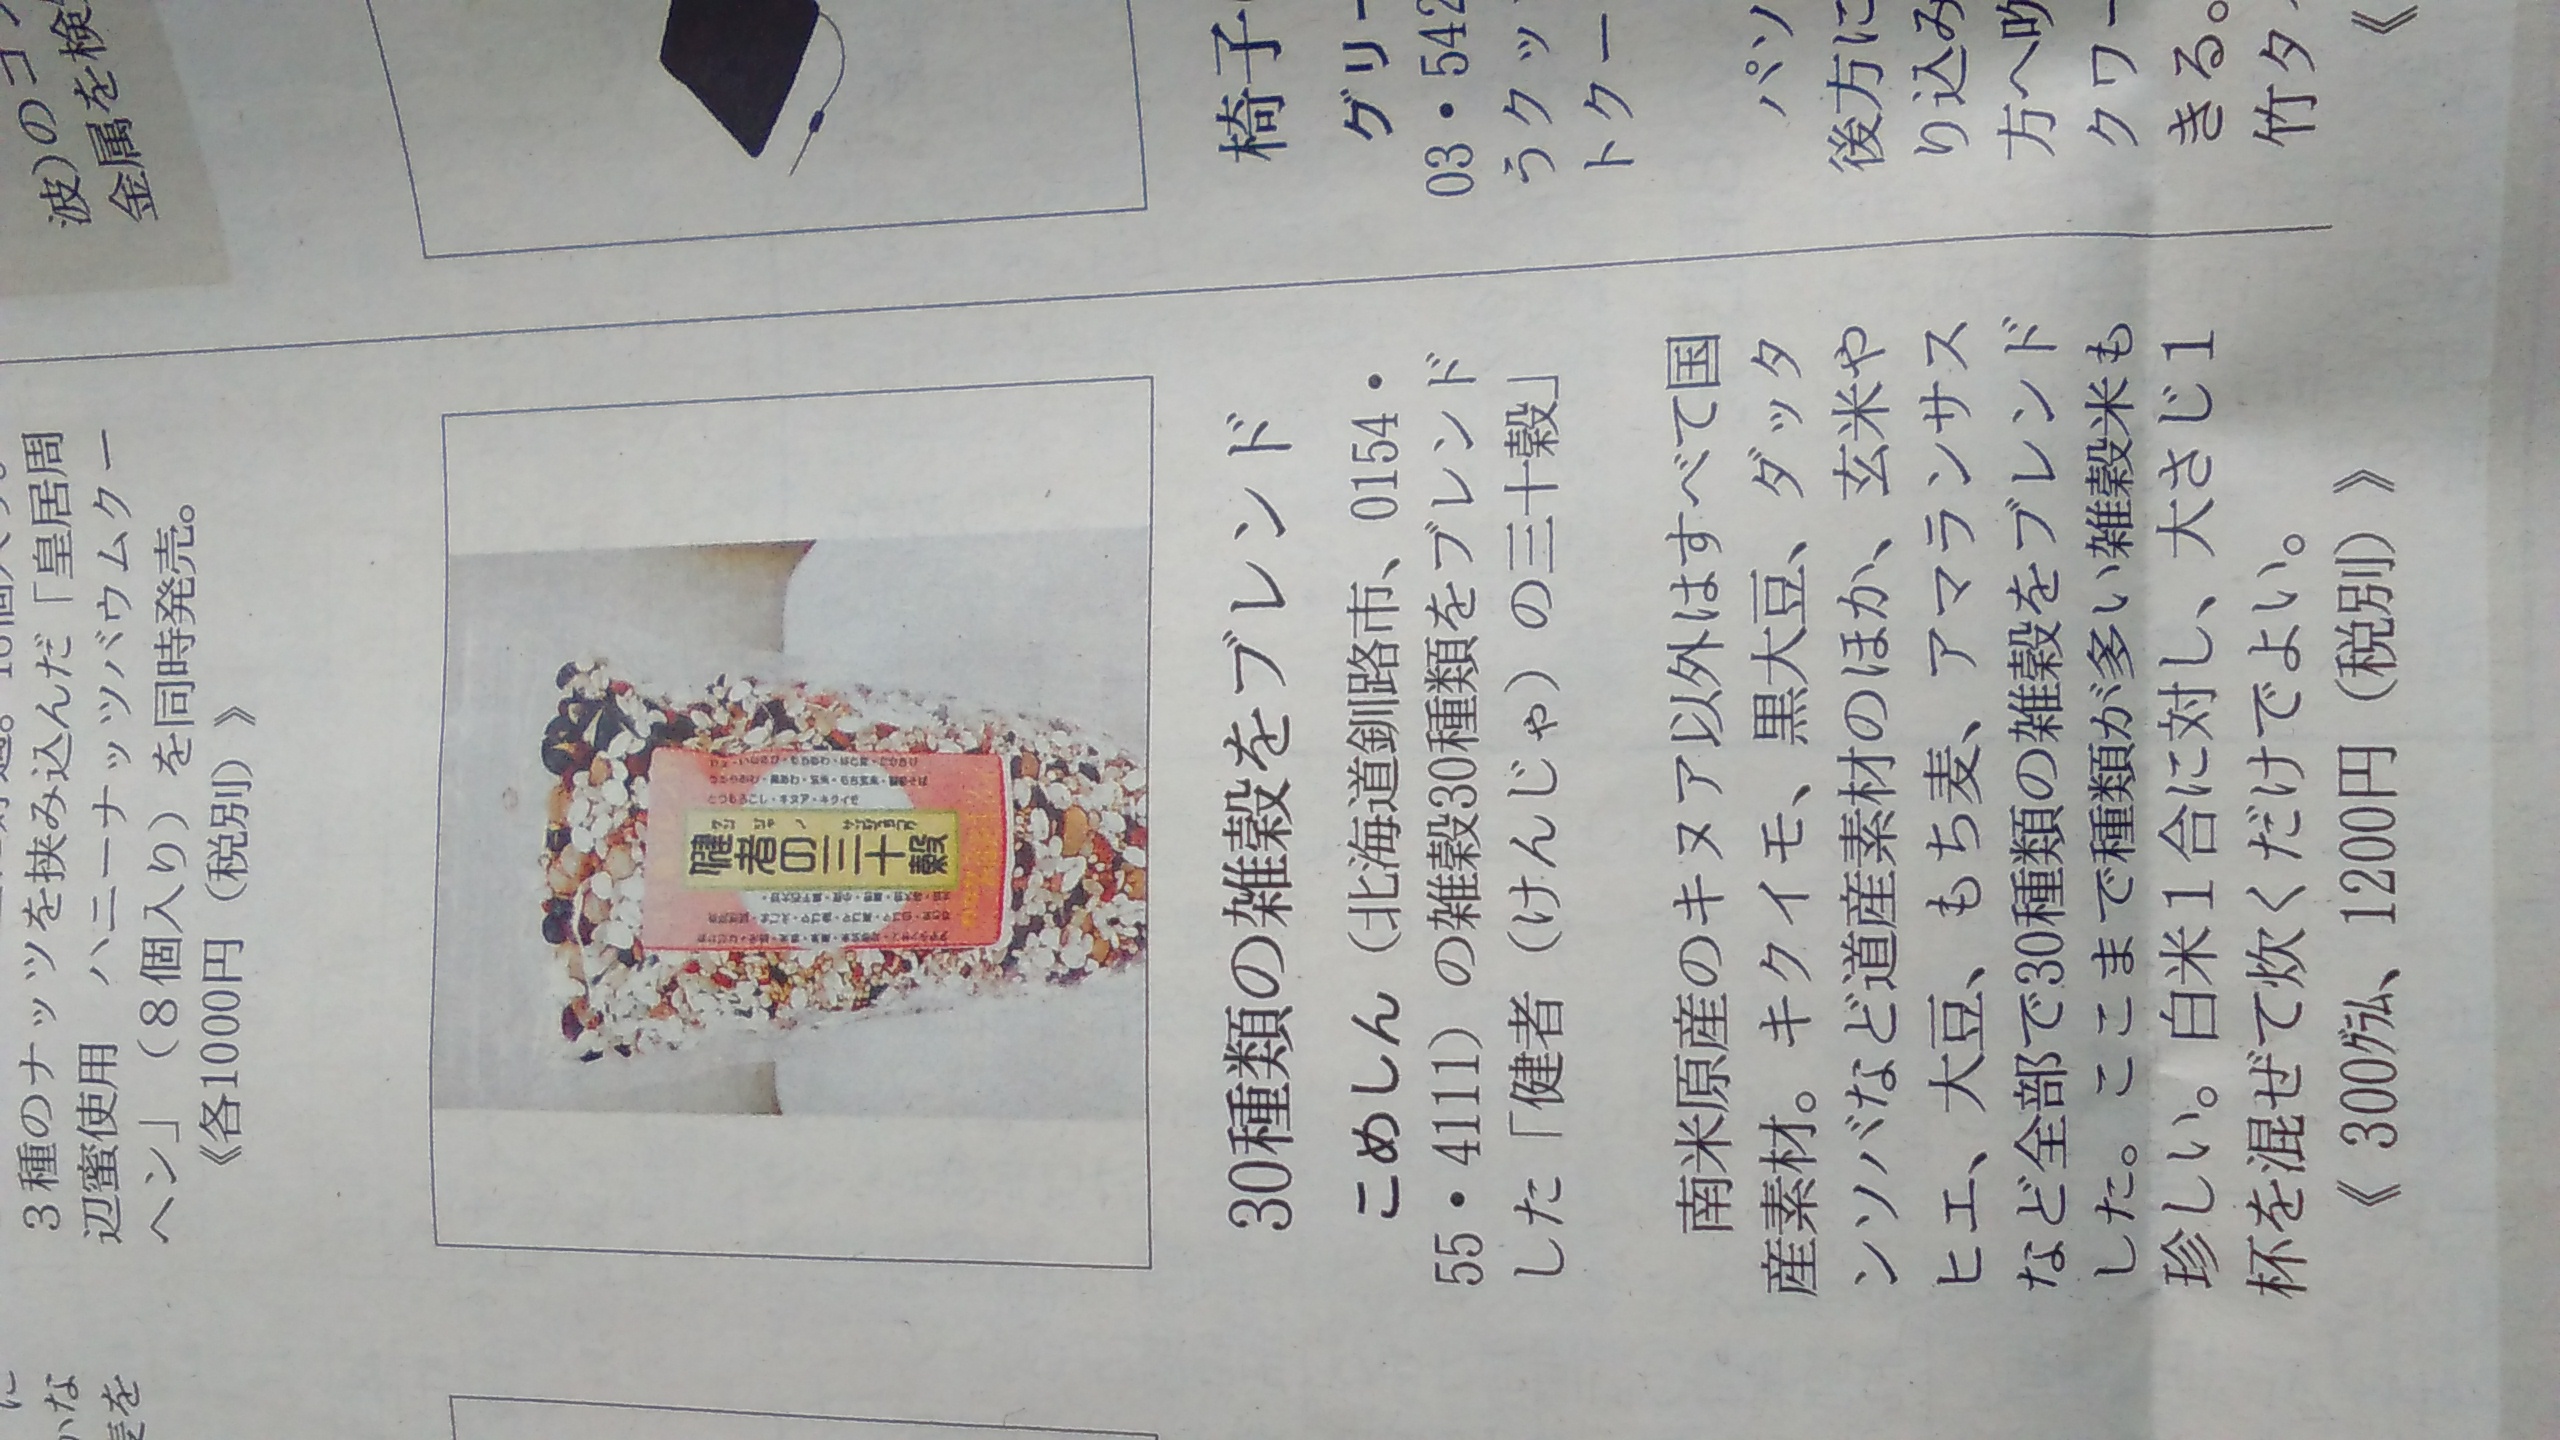 波)のコ
金属を検
3種のナッツを挟み込んだ「皇居周
辺蜜使用　ハニーナッツバウムクー
ヘン」（8個入り）を同時発売。
《各1000円（税別）》
に
かな
麦を
健者の三十穀
ケンジャノ　サンジュウコク
とうもろこし・キヌア・キクイモ
30種類の雑穀をブレンド
こめしん（北海道釧路市、0154・
55・4111）の雑穀30種類をブレンド
した「健者（けんじゃ）の三十穀」
南米原産のキヌア以外はすべて国
産素材。キクイモ、黒大豆、ダッタ
ンソバなど道産素材のほか、玄米や
ヒエ、大豆、もち麦、アマランサス
など全部で30種類の雑穀をブレンド
した。ここまで種類が多い雑穀米も
珍しい。白米1合に対し、大さじ1
杯を混ぜて炊くだけでよい。
《300㌘、1200円（税別）》
椅子
グリー
03・542
うクッ
トクー
パソ
後方に
り込み
方へ吹
クワー
きる。
竹タ
《